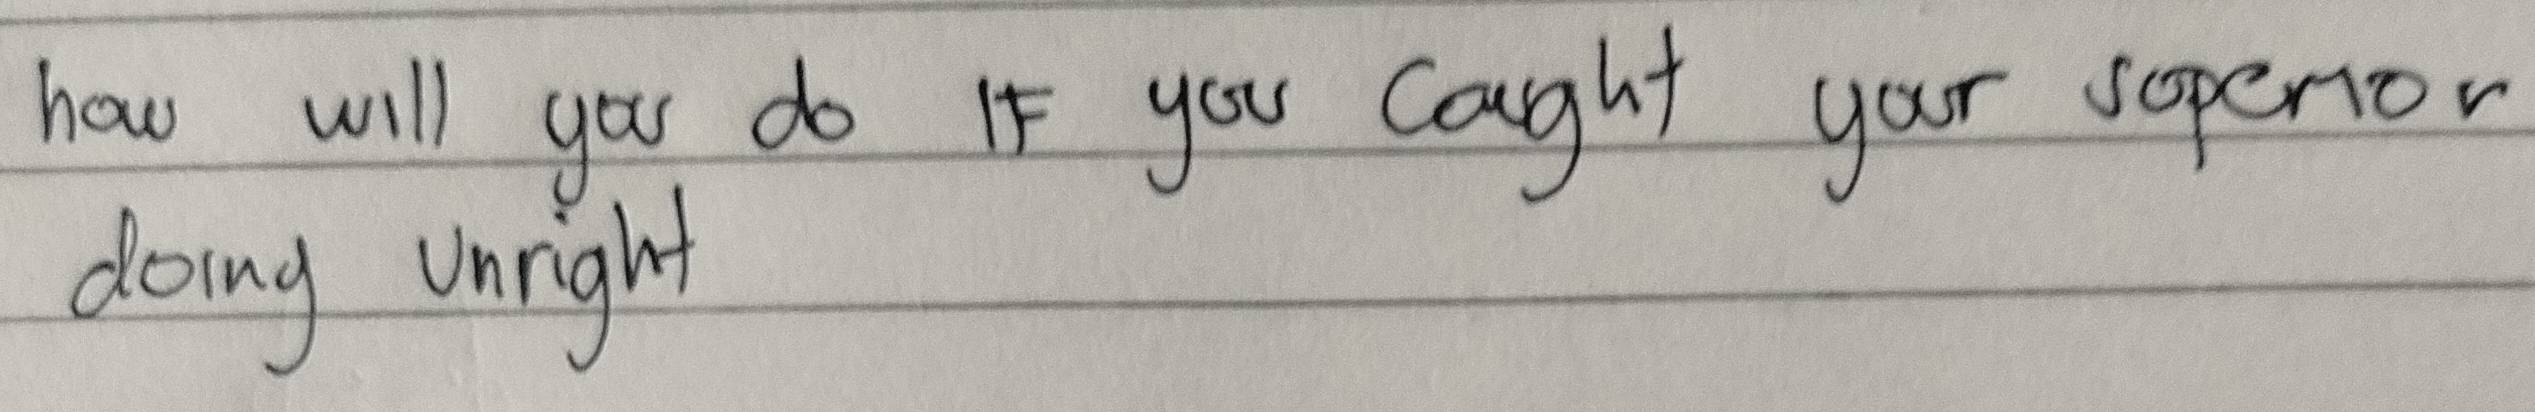 how will you do if you caught your soperior
doing unright